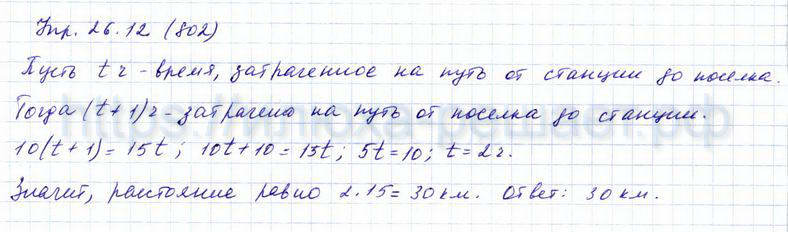 Упр. 26.12 (802)
Пусть t ч - время, затраченное на путь от станции до поселка.
Тогда (t+1) ч - затрачено на путь от поселка до станции.
10(t+1) = 15t; 10t+10 = 15t; 5t=10; t=2 ч.
Значит, расстояние равно 2·15=30 км. Ответ: 30 км.